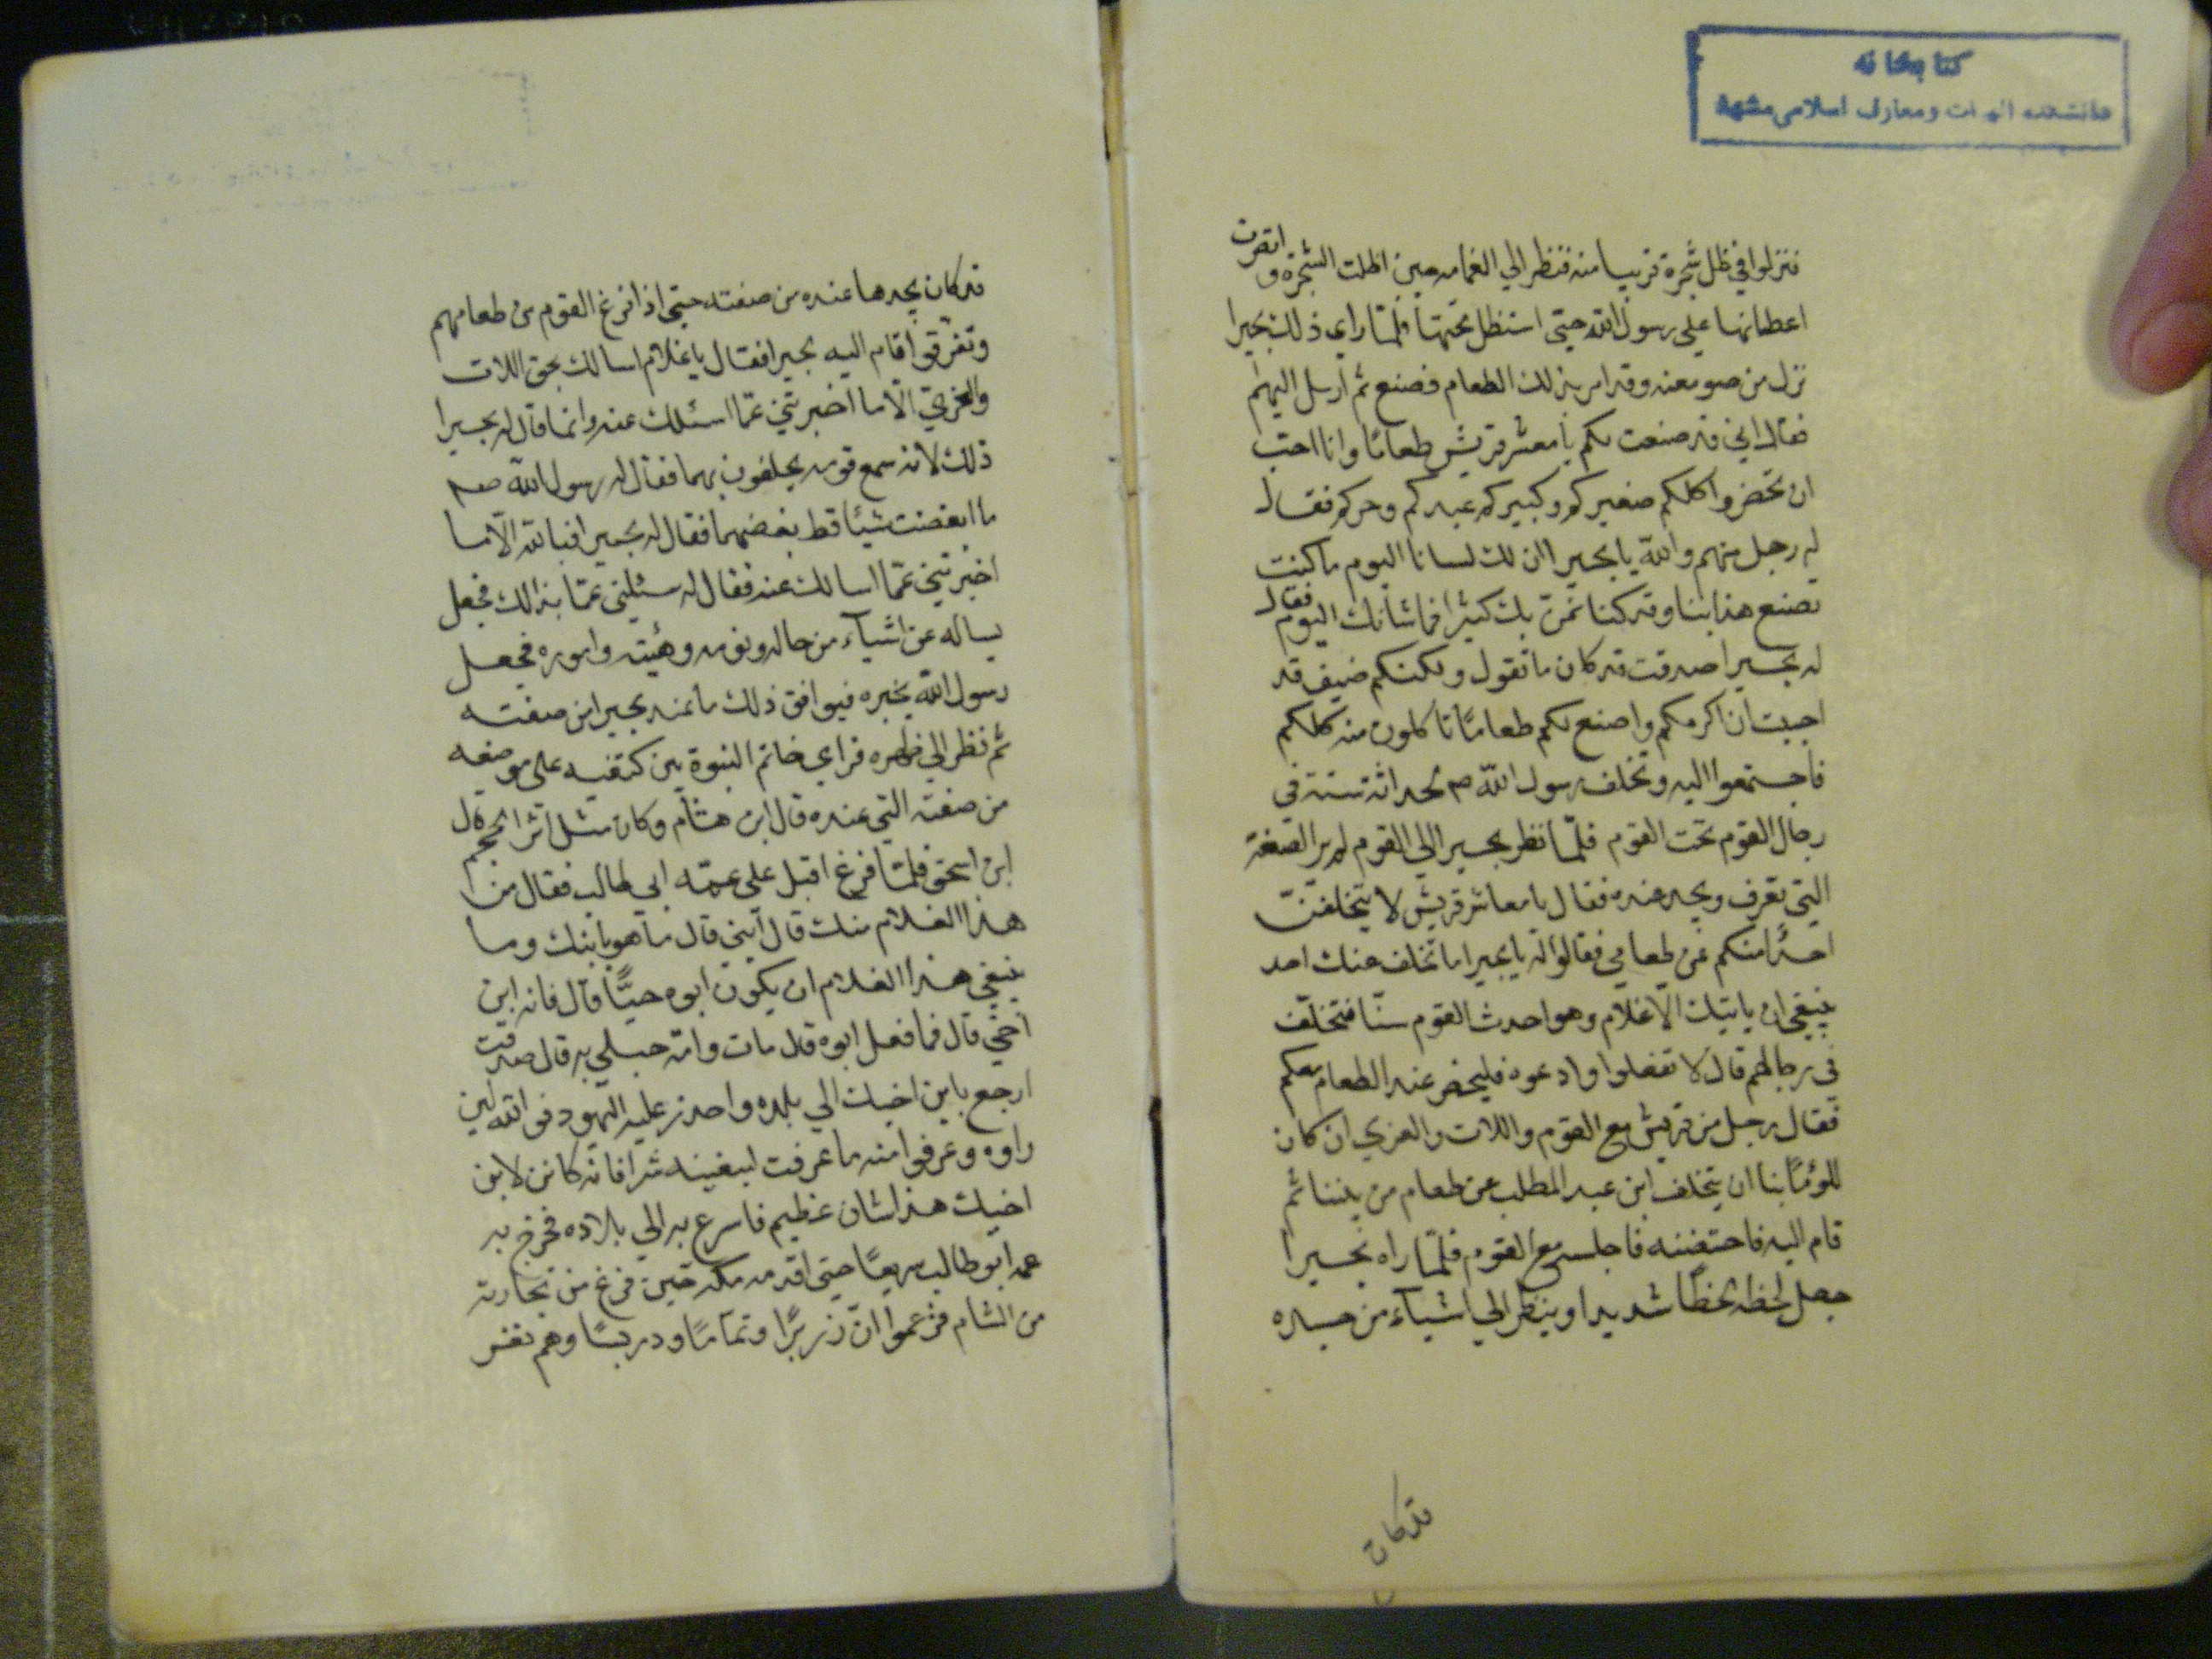 كتابخانه
دانشكده الهيات ومعارف اسلامى مشهد
فنزلوا في ظل شجرة قريبا منه فنظر الي الغمامه حين اظلت الشجرة و اتصرت
اغصانها علي رسول الله حتى استظل تحتها فلمّا راي ذلك بحيرا
نزل من صومعته وقد امر بذلك الطعام فصنع ثم ارسل اليهم
فقال اني قد صنعت لكم يا معشر قريش طعامًا وانا احبّ
ان تحضروا كلكم صغيركم وكبيركم عبدكم وحركم فقال
له رجل منهم والله يا بحيرا ان لك لسانا اليوم ما كنت
تصنع هذا بنا وقد كنا نمرّ بك كثيرا فما شانك اليوم فقال
له بحيرا صدقت قد كان ما تقول ولكنكم ضيف قد
احببت ان اكرمكم واصنع لكم طعامًا تاكلون منه كلكم
فاجتمعوا اليه وتخلف رسول الله صم لحداثة سنه في
رحال القوم تحت القوم فلمّا نظر بحيرا الي القوم لم ير الصفة
التي تعرف ويجد عنده فقال يا معاشر قريش لا يتخلفنّ
احدًا منكم عن طعامي فقالوا له يا بحيرا ما تخلف عنك احد
ينبغي ان ياتيك الّا غلام وهو احدث القوم سنّا فتخلّف
في رحالهم قال لا تفعلوا وادعوه فليحضر عند الطعام معكم
فقال رجل من قريش مع القوم واللات والعزي ان كان
للؤمًا بنا ان يتخلف ابن عبد المطلب عن طعام من بيننا ثم
قام اليه فاحتضنه فاجلسه مع القوم فلمّا راه بحيرا
جعل لحظه لحظًا شديدا وينظر الي اشيآء من جسده
قد كان
قد كان يجدها عنده من صفته حتى اذا فرغ القوم من طعامهم
وتفرقوا قام اليه بحيرا فقال يا غلام اسالك بحق اللات
والعزيّ الّا ما اخبرتني عمّا اسئلك عنه وانما قال له بحيرا
ذلك لانه سمع قومه يحلفون بهما فقال له رسول الله صم
ما ابغضت شيئا قط بغضهما فقال له بحيرا فبالله الّا ما
اخبرتني عمّا اسالك عنه فقال له سئلني عمّا بذالك فجعل
يساله عن اشيآء من حاله ونومه وهيئته واموره فجعل
رسول الله يخبره فيوافق ذلك ما عنده بحيرا من صفته
ثم نظر الي ظهره فراي خاتم النبوة بين كتفيه على موضعه
من صفته التي عنده قال ابن هشام وكان مثل اثر المحجم قال
ابن اسحق فلمّا فرغ اقبل على عمّه ابي طالب فقال من
هذا الغلام منك قال ابني قال ما هو بابنك وما
ينبغي هذا الغلام ان يكون ابوه حيًّا قال فانه ابن
اخي قال فما فعل ابوه قال مات وامّه حبلي به قال صدقت
ارجع بابن اخيك الي بلده واحذر عليه اليهود فوالله لئن
راوه وعرفوا منه ما عرفت ليبغينه شرا فانّه كائن لابن
اخيك هذا شان عظيم فاسرع به الي بلاده فخرج به
عمه ابو طالب سريعًا حتى اقدمه مكه حين فرغ من تجارته
من الشام فزعموا انّ زريرًا وتمامًا ودريسًا وهم نفر